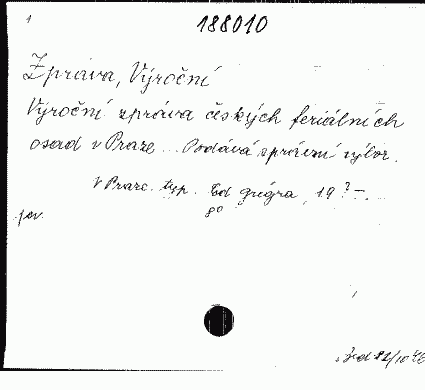 1
188010
Zpráva, Výroční
Výroční zpráva českých feriálních
osad v Praze... Podává správní výbor.
V Praze. typ. Ed. Grégra, 19?-.
8°